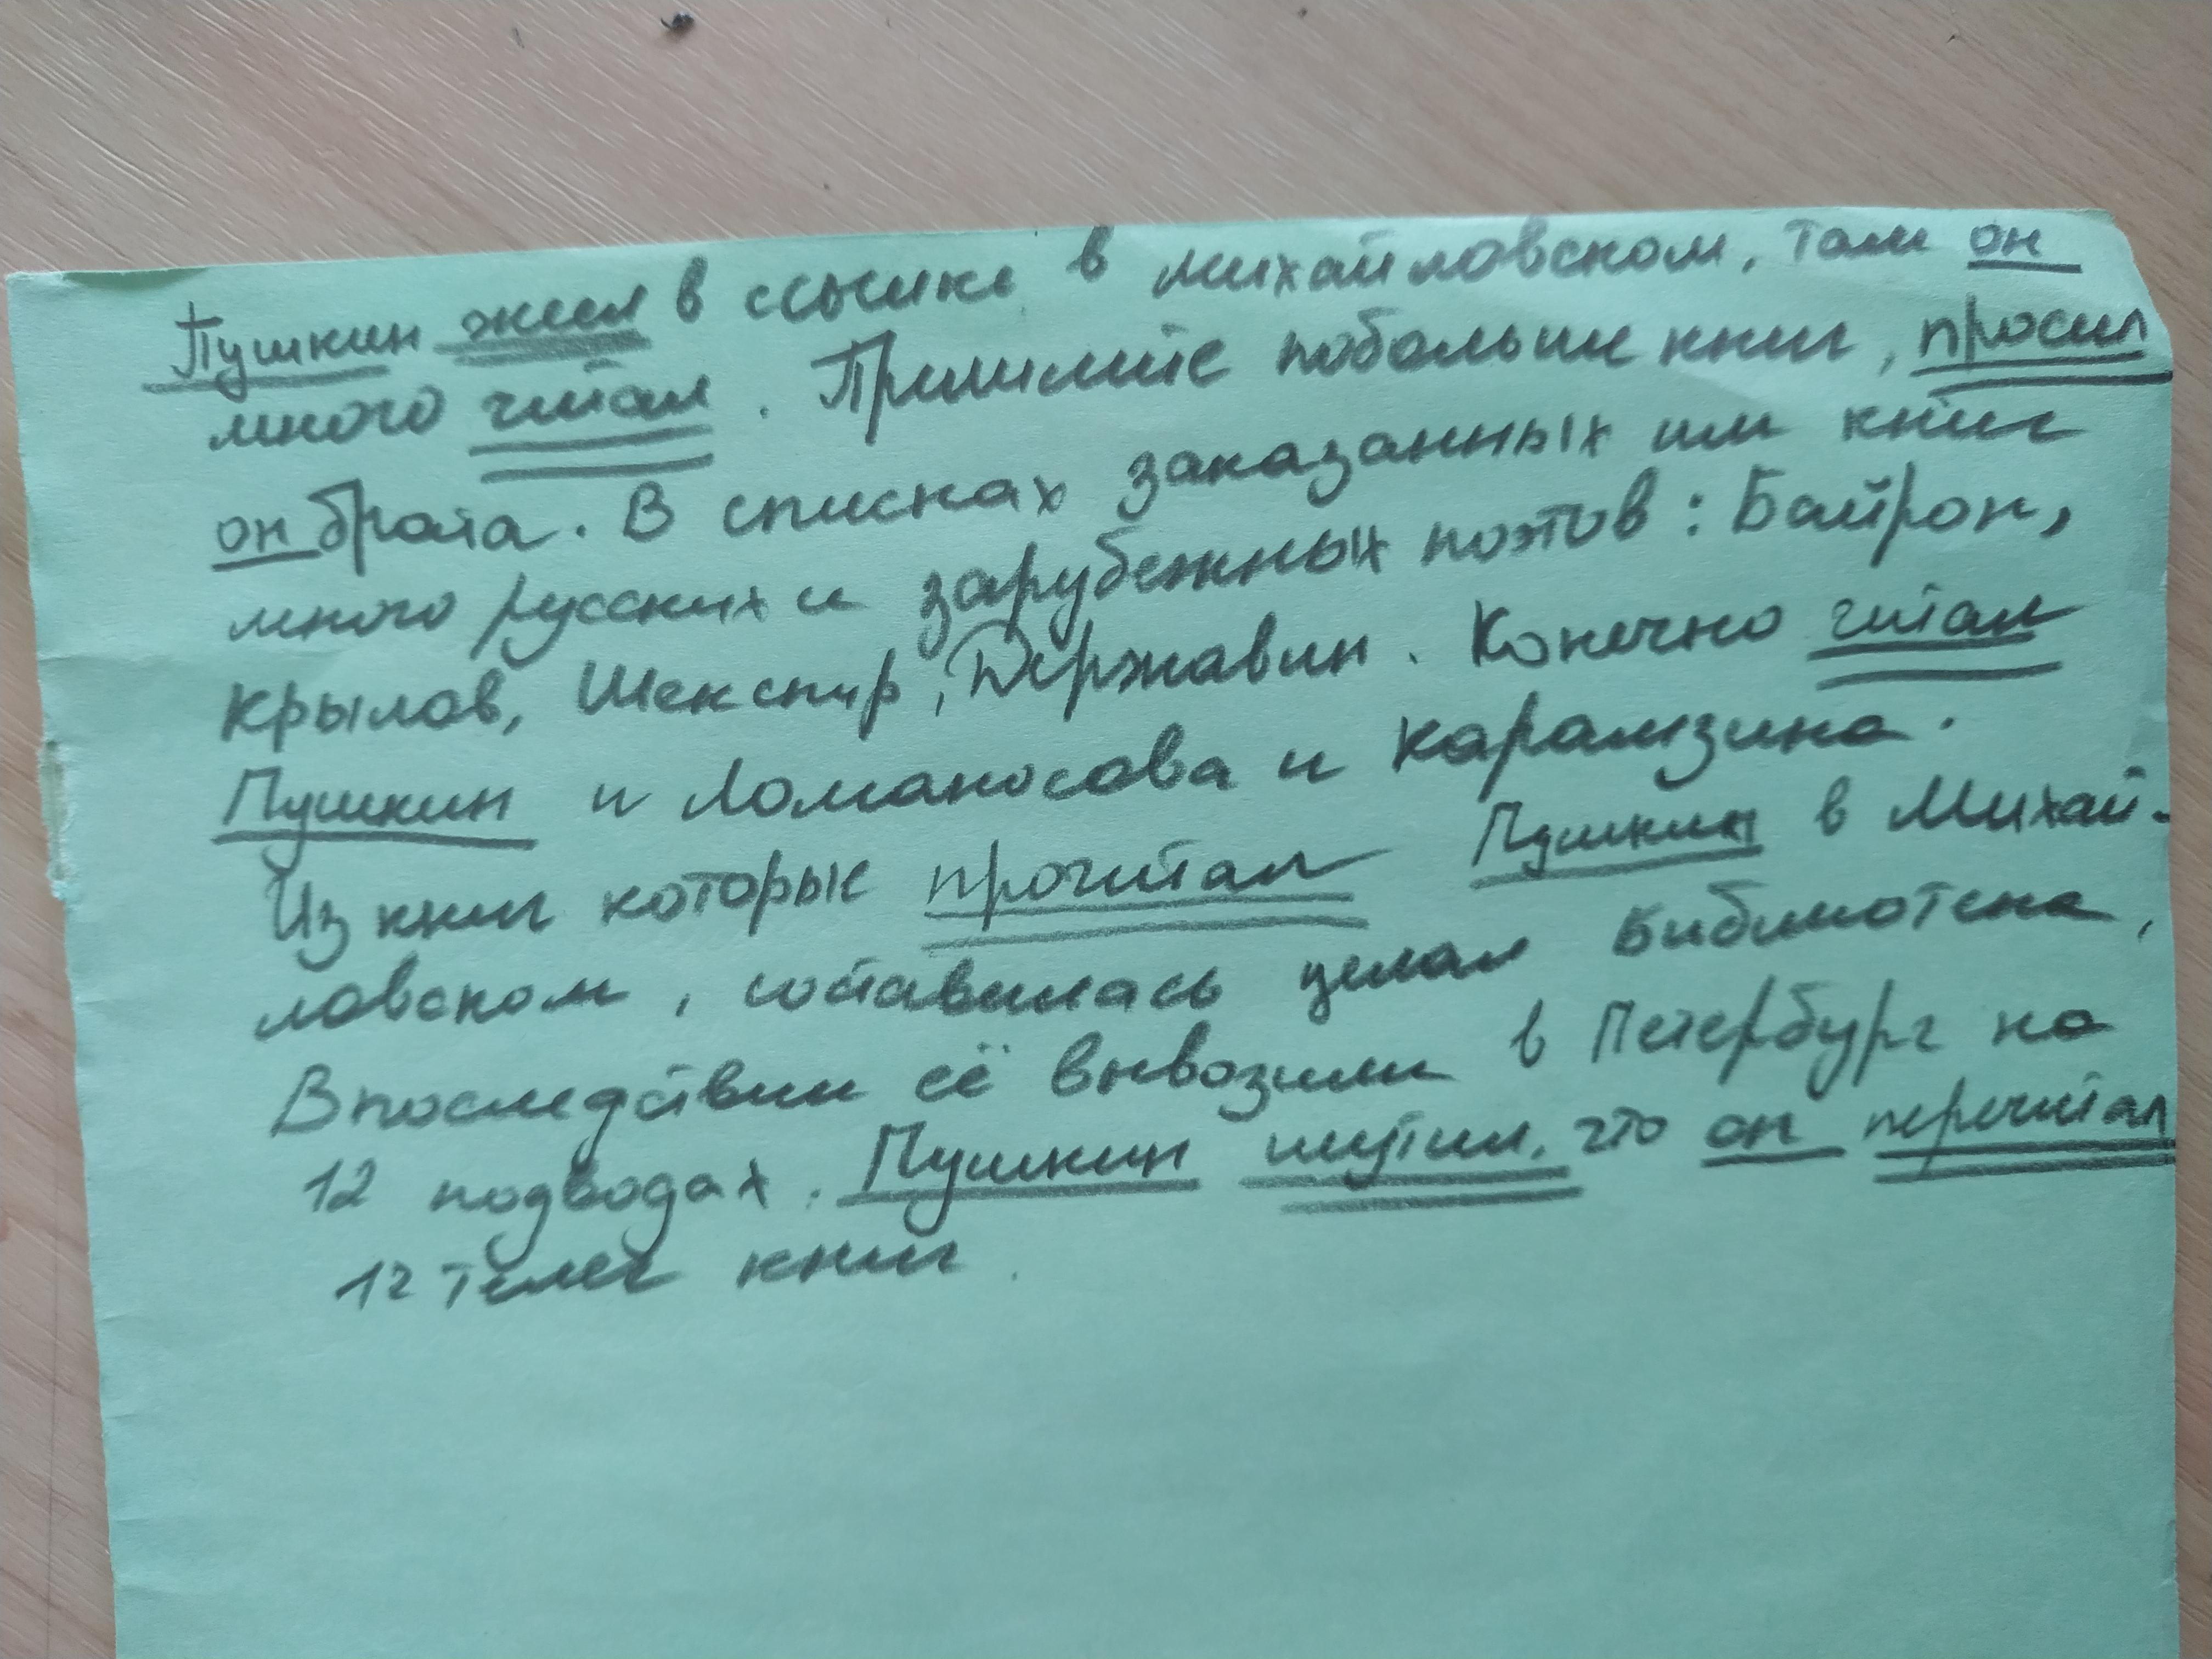 Пушкин жил в ссылке в Михайловском, там он
много читал. Пришлите побольше книг, просил
он брата. В списках заказанных им книг
много русских и зарубежных поэтов: Байрон,
Крылов, Шекспир, Державин. Конечно читал
Пушкин и Ломаносова и Карамзина.
Из книг которые прочитал Пушкин в Михай-
ловском, составилась целая библиотека,
Впоследствии её вывозили в Петербург на
12 подводах. Пушкин шутил, что он перечитал
12 телег книг.